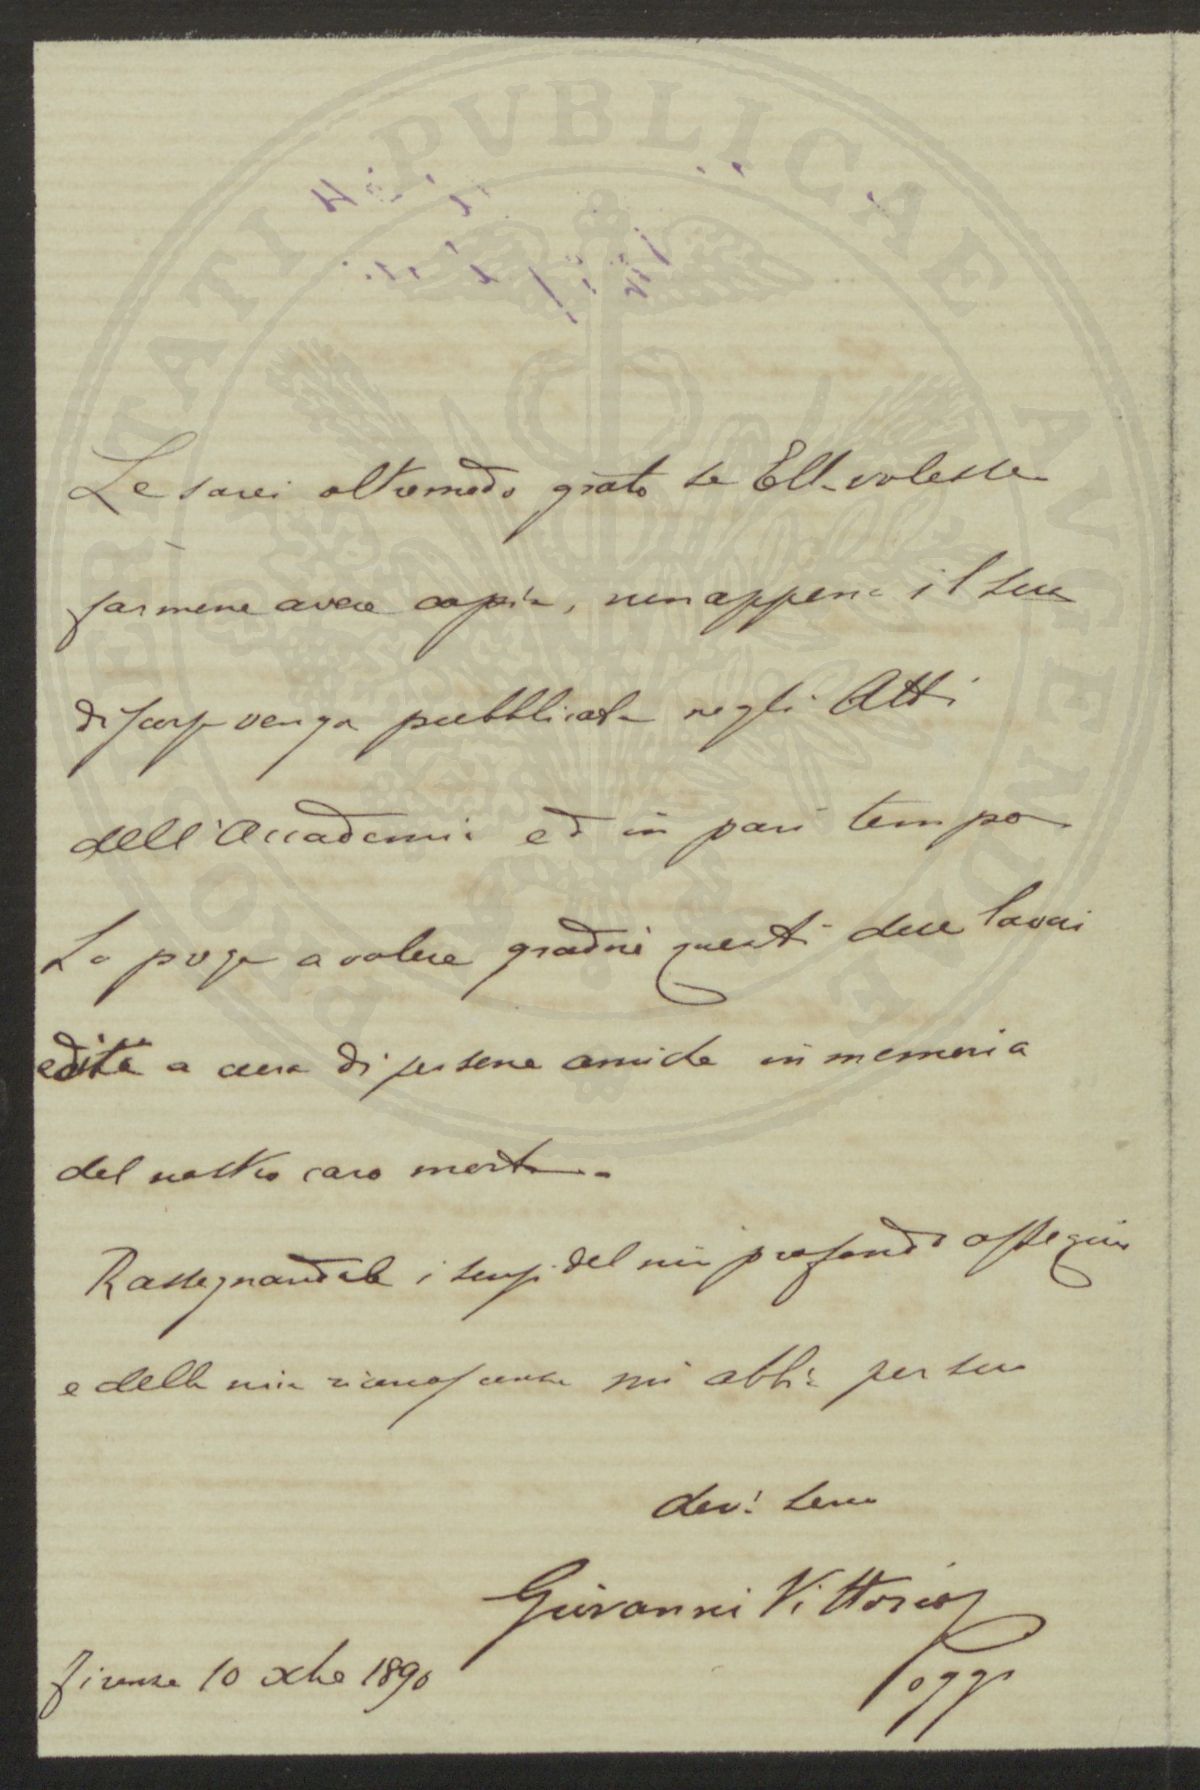 PROSPERITATI PVBLICAE AVGENDAE
Le sarei oltremodo grato se Ella volesse
farmene avere copia, non appena il suo
discorso venga pubblicato negli Atti
dell'Accademia ed in pari tempo
La prego a volere gradire questi due lavori
editi a cura di persone amiche in memoria
del nostro caro morto.
Rassegnandole i sensi del mio profondo ossequio
e della mia riconoscenza mi abbia per suo
dev: servo
Giovanni Vittorio
Poggi
Firenze 10 xbe 1890